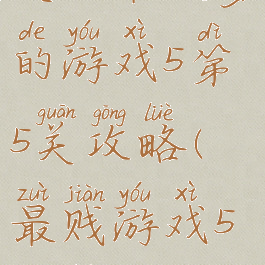 de yóu xì dì
的游戏5第
guān gōng lüè
5关攻略(
zuì jiàn yóu xì
最贱游戏5